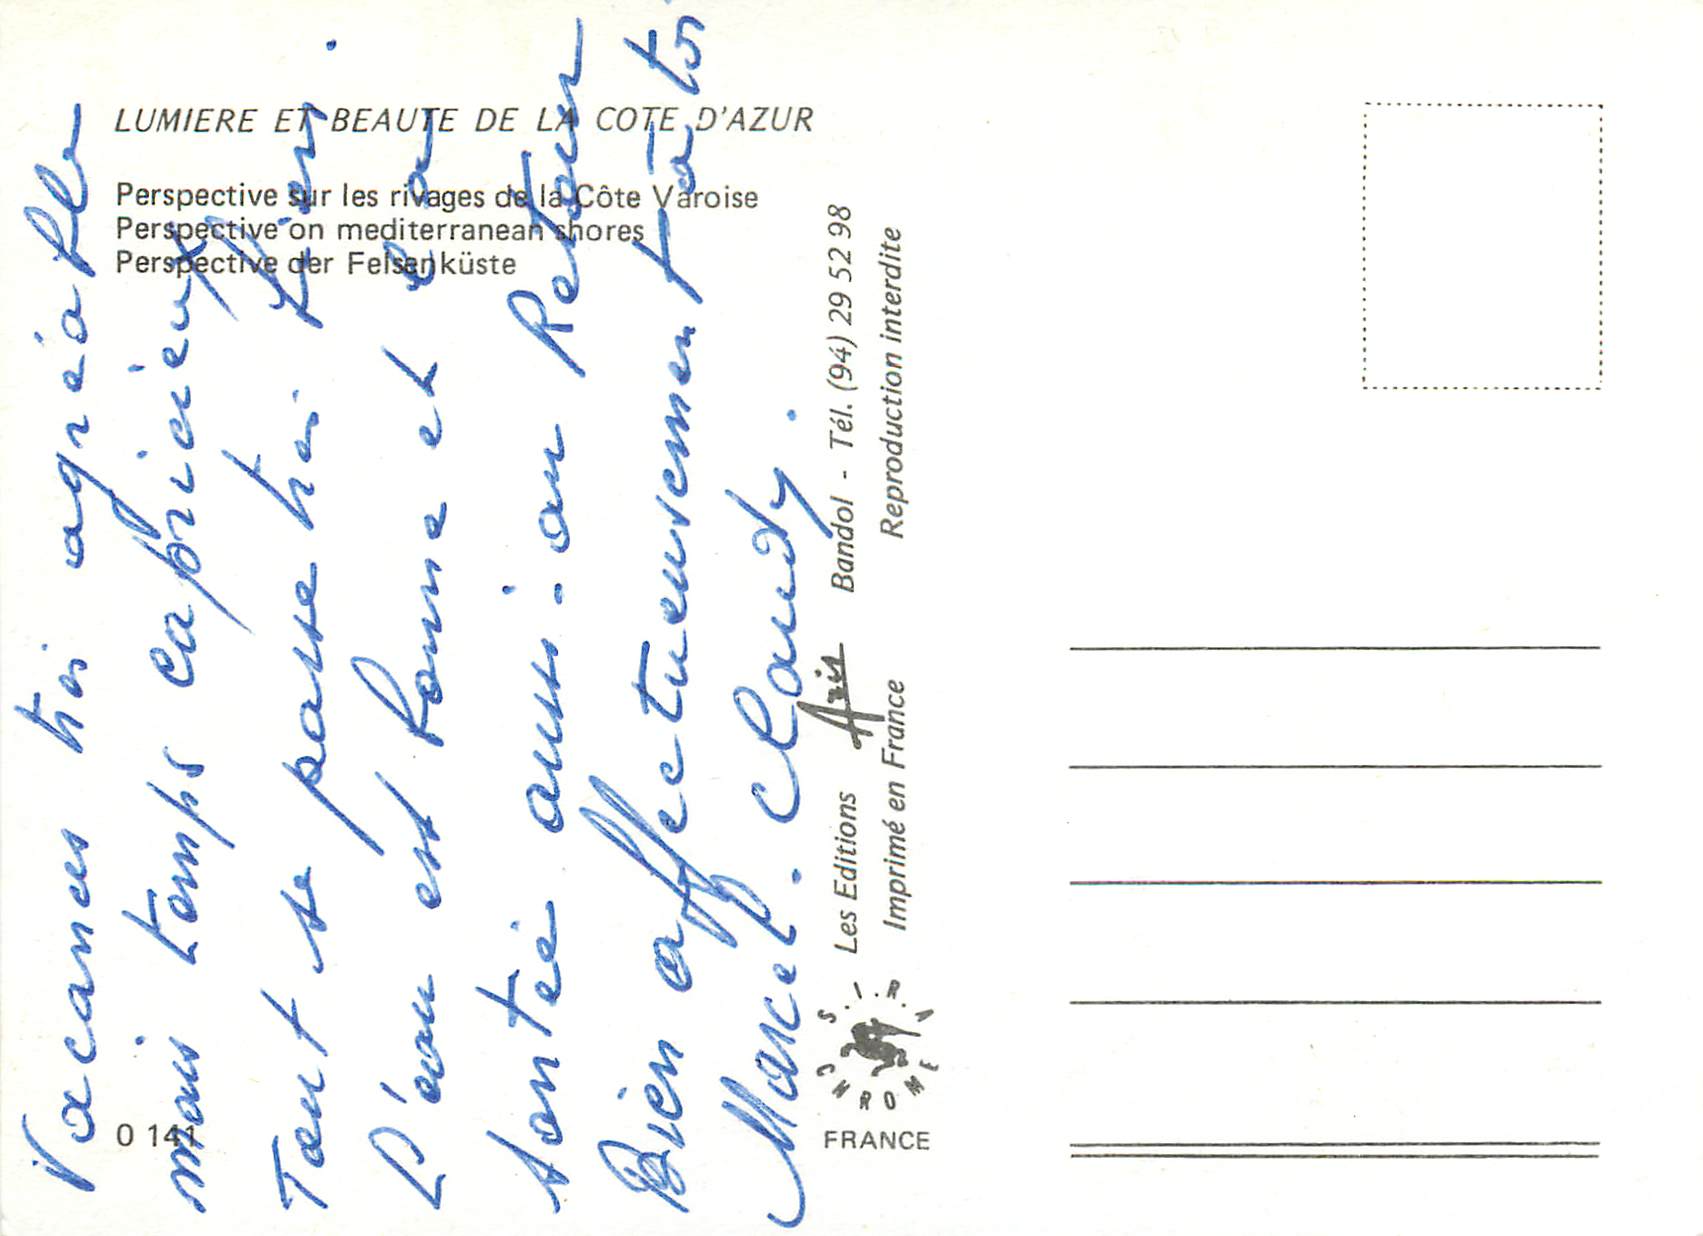 LUMIERE ET BEAUTE DE LA COTE D'AZUR
Perspective sur les rivages de la Côte Varoise
Perspective on mediterranean shores
Perspective der Felsenküste
Vacances très agréable
mais temps capricieux
Tout se passe très bien.
L'eau est bonne et la
santée aussi. au Retour
Bien affectueusement à toi
Marcel. Claudy.
Les Editions Aris Bandol - Tél. (94) 29 52 98
Imprimé en France Reproduction interdite
S.I.R.A.
CHROME
FRANCE
O 141